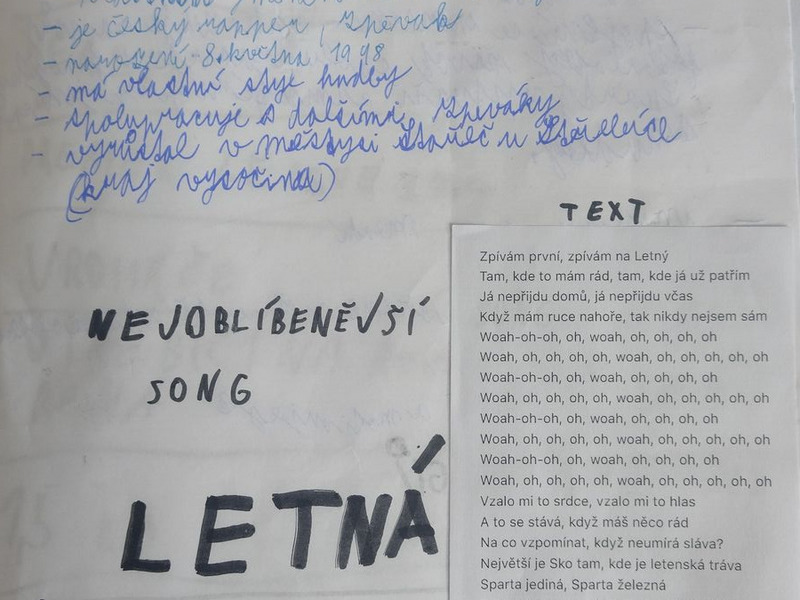 - je český rapper, zpěvák
- narození 8. května 1998
- má vlastní styl hudby
- spolupracuje s dalšími zpěváky
- vyrůstal v městysi Stařeč u
(kraj vysočina)
TEXT
Zpívám první, zpívám na Letný
Tam, kde to mám rád, tam, kde já už patřím
Já nepřijdu domů, já nepřijdu včas
Když mám ruce nahoře, tak nikdy nejsem sám
Woah-oh-oh, oh, woah, oh, oh, oh, oh
Woah, oh, oh, oh, oh, woah, oh, oh, oh, oh, oh
Woah-oh-oh, oh, woah, oh, oh, oh, oh
Woah, oh, oh, oh, oh, woah, oh, oh, oh, oh, oh
Woah-oh-oh, oh, woah, oh, oh, oh, oh
Woah, oh, oh, oh, oh, woah, oh, oh, oh, oh, oh
Woah-oh-oh, oh, woah, oh, oh, oh, oh
Woah, oh, oh, oh, oh, woah, oh, oh, oh, oh, oh
Vzalo mi to srdce, vzalo mi to hlas
A to se stává, když máš něco rád
Na co vzpomínat, když neumírá sláva?
Největší je Sko tam, kde je letenská tráva
Sparta jediná, Sparta železná
NEJOBLÍBENĚJŠÍ
SONG
LETNÁ